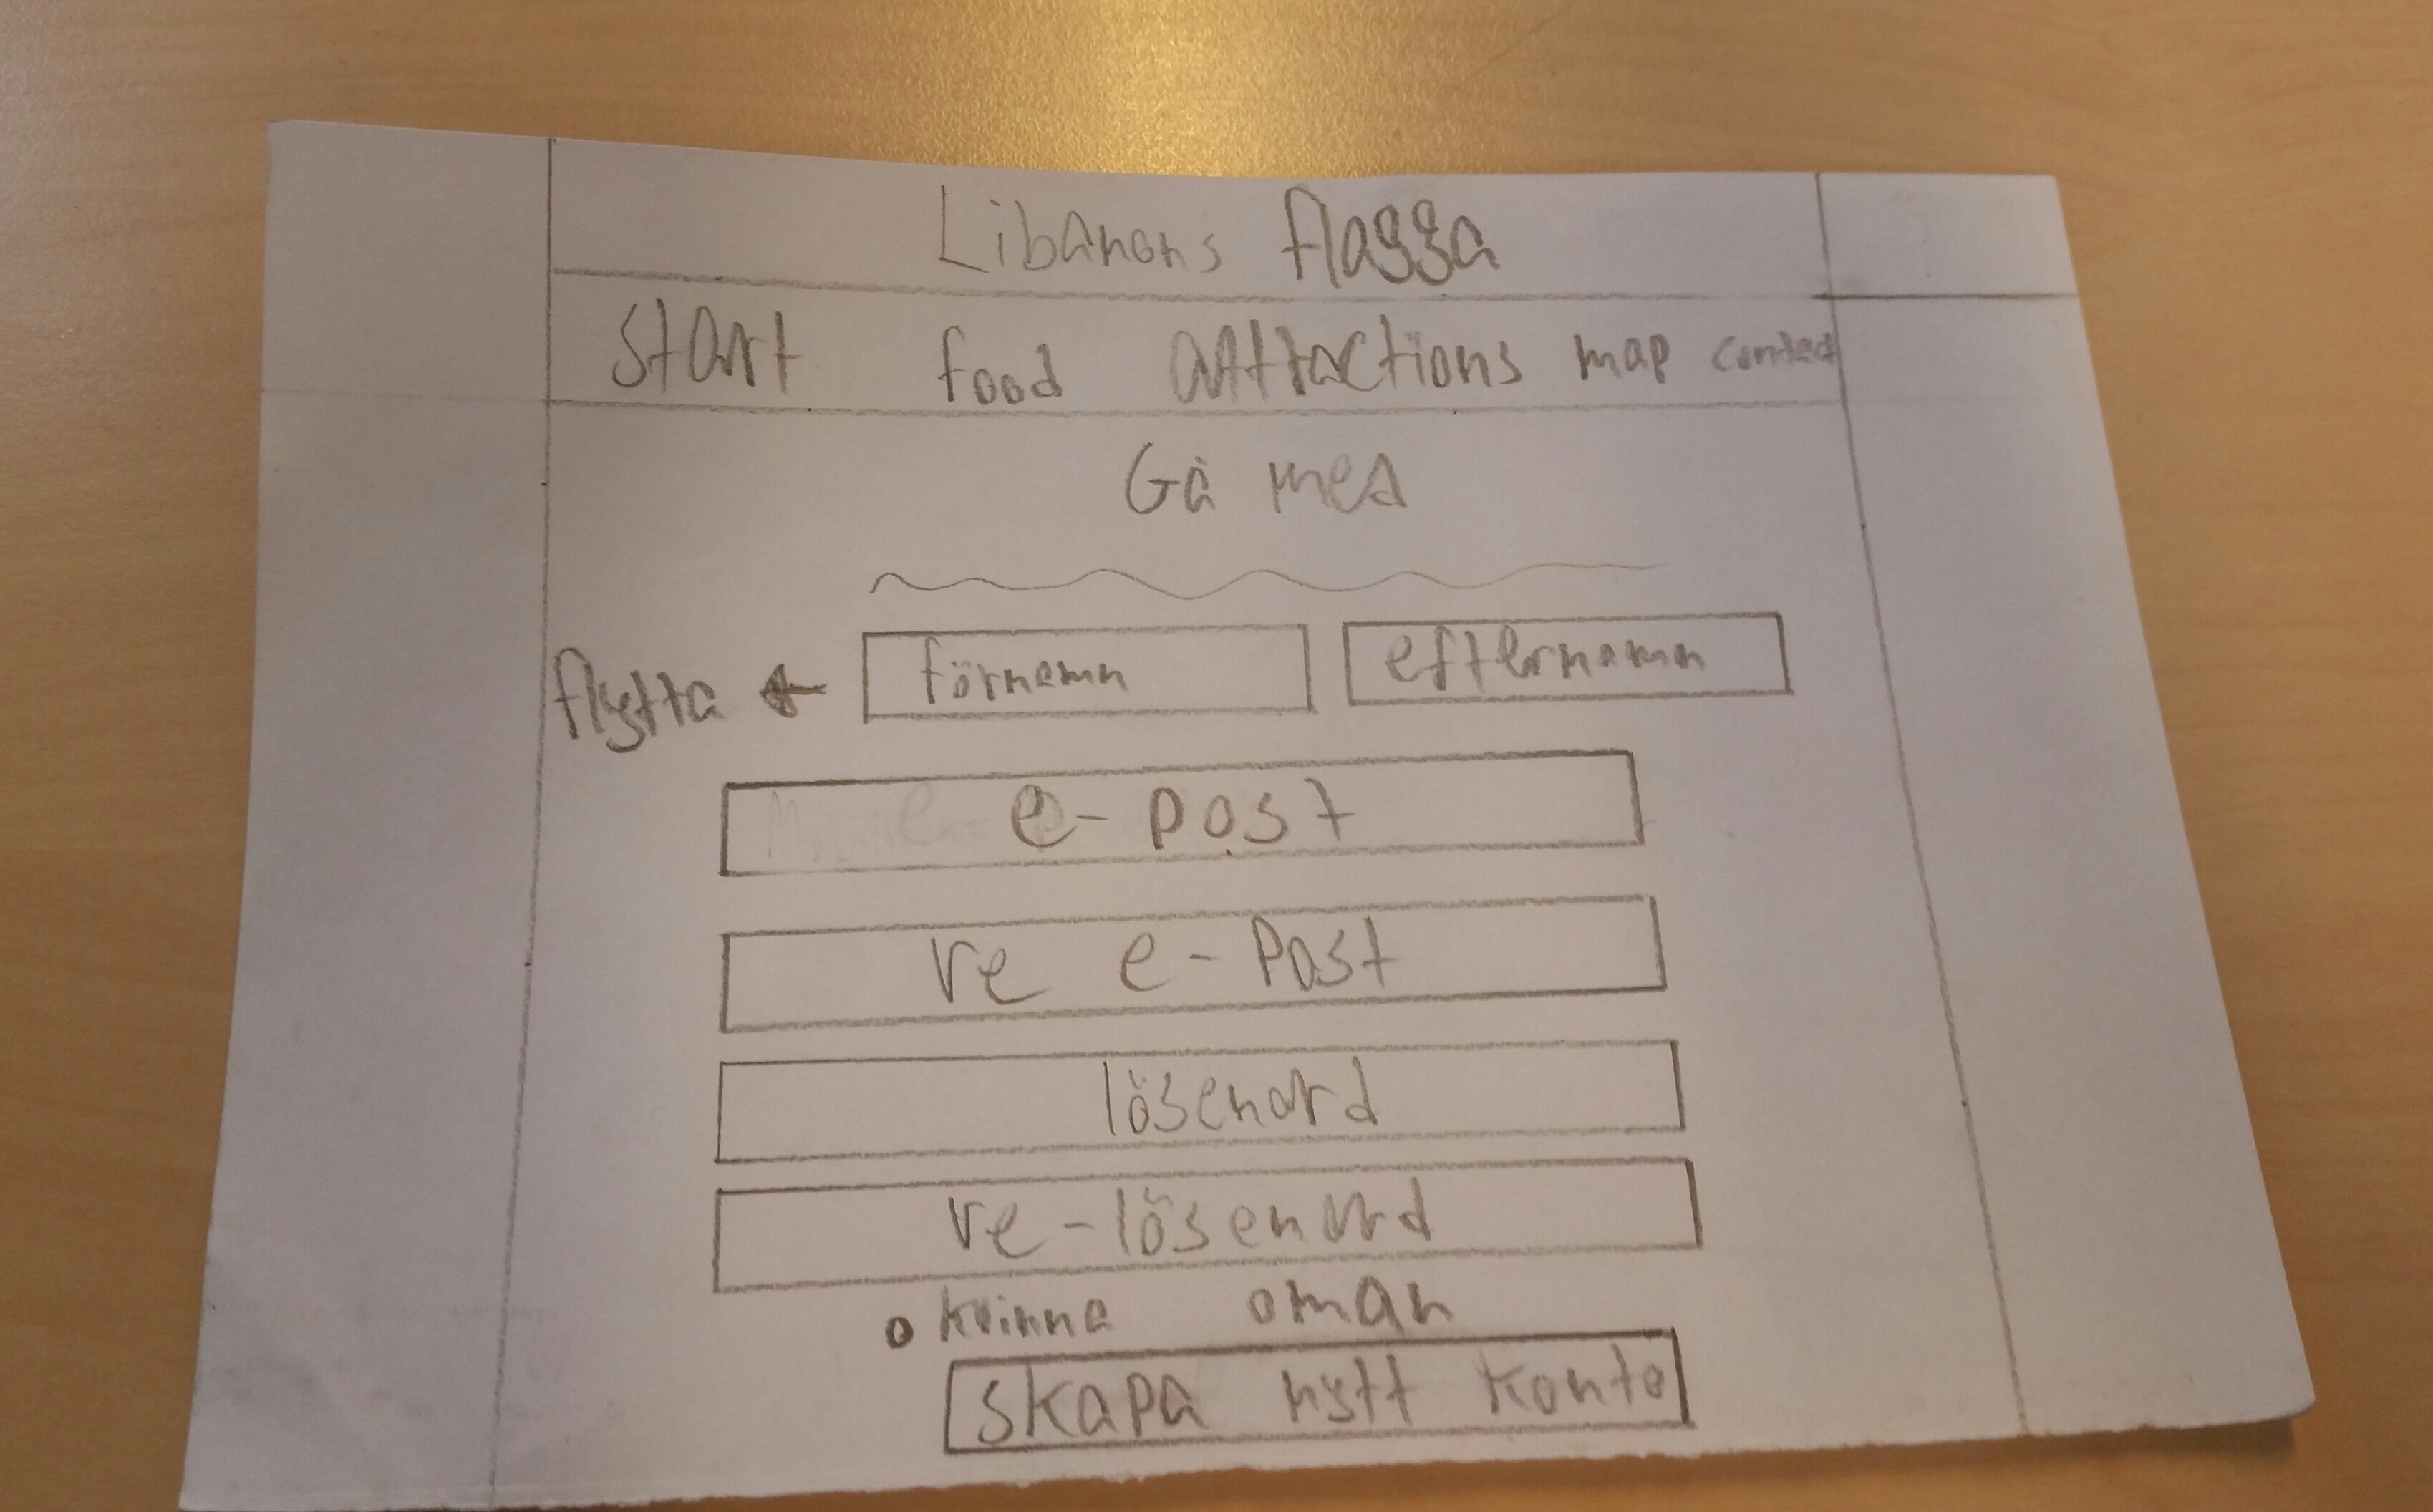 Libanons flagga
start food attractions map contact
Gå med
flytta ← förnamn efternamn
e-post
re e-Post
lösenord
re-lösenord
o kvinna o man
skapa nytt konto